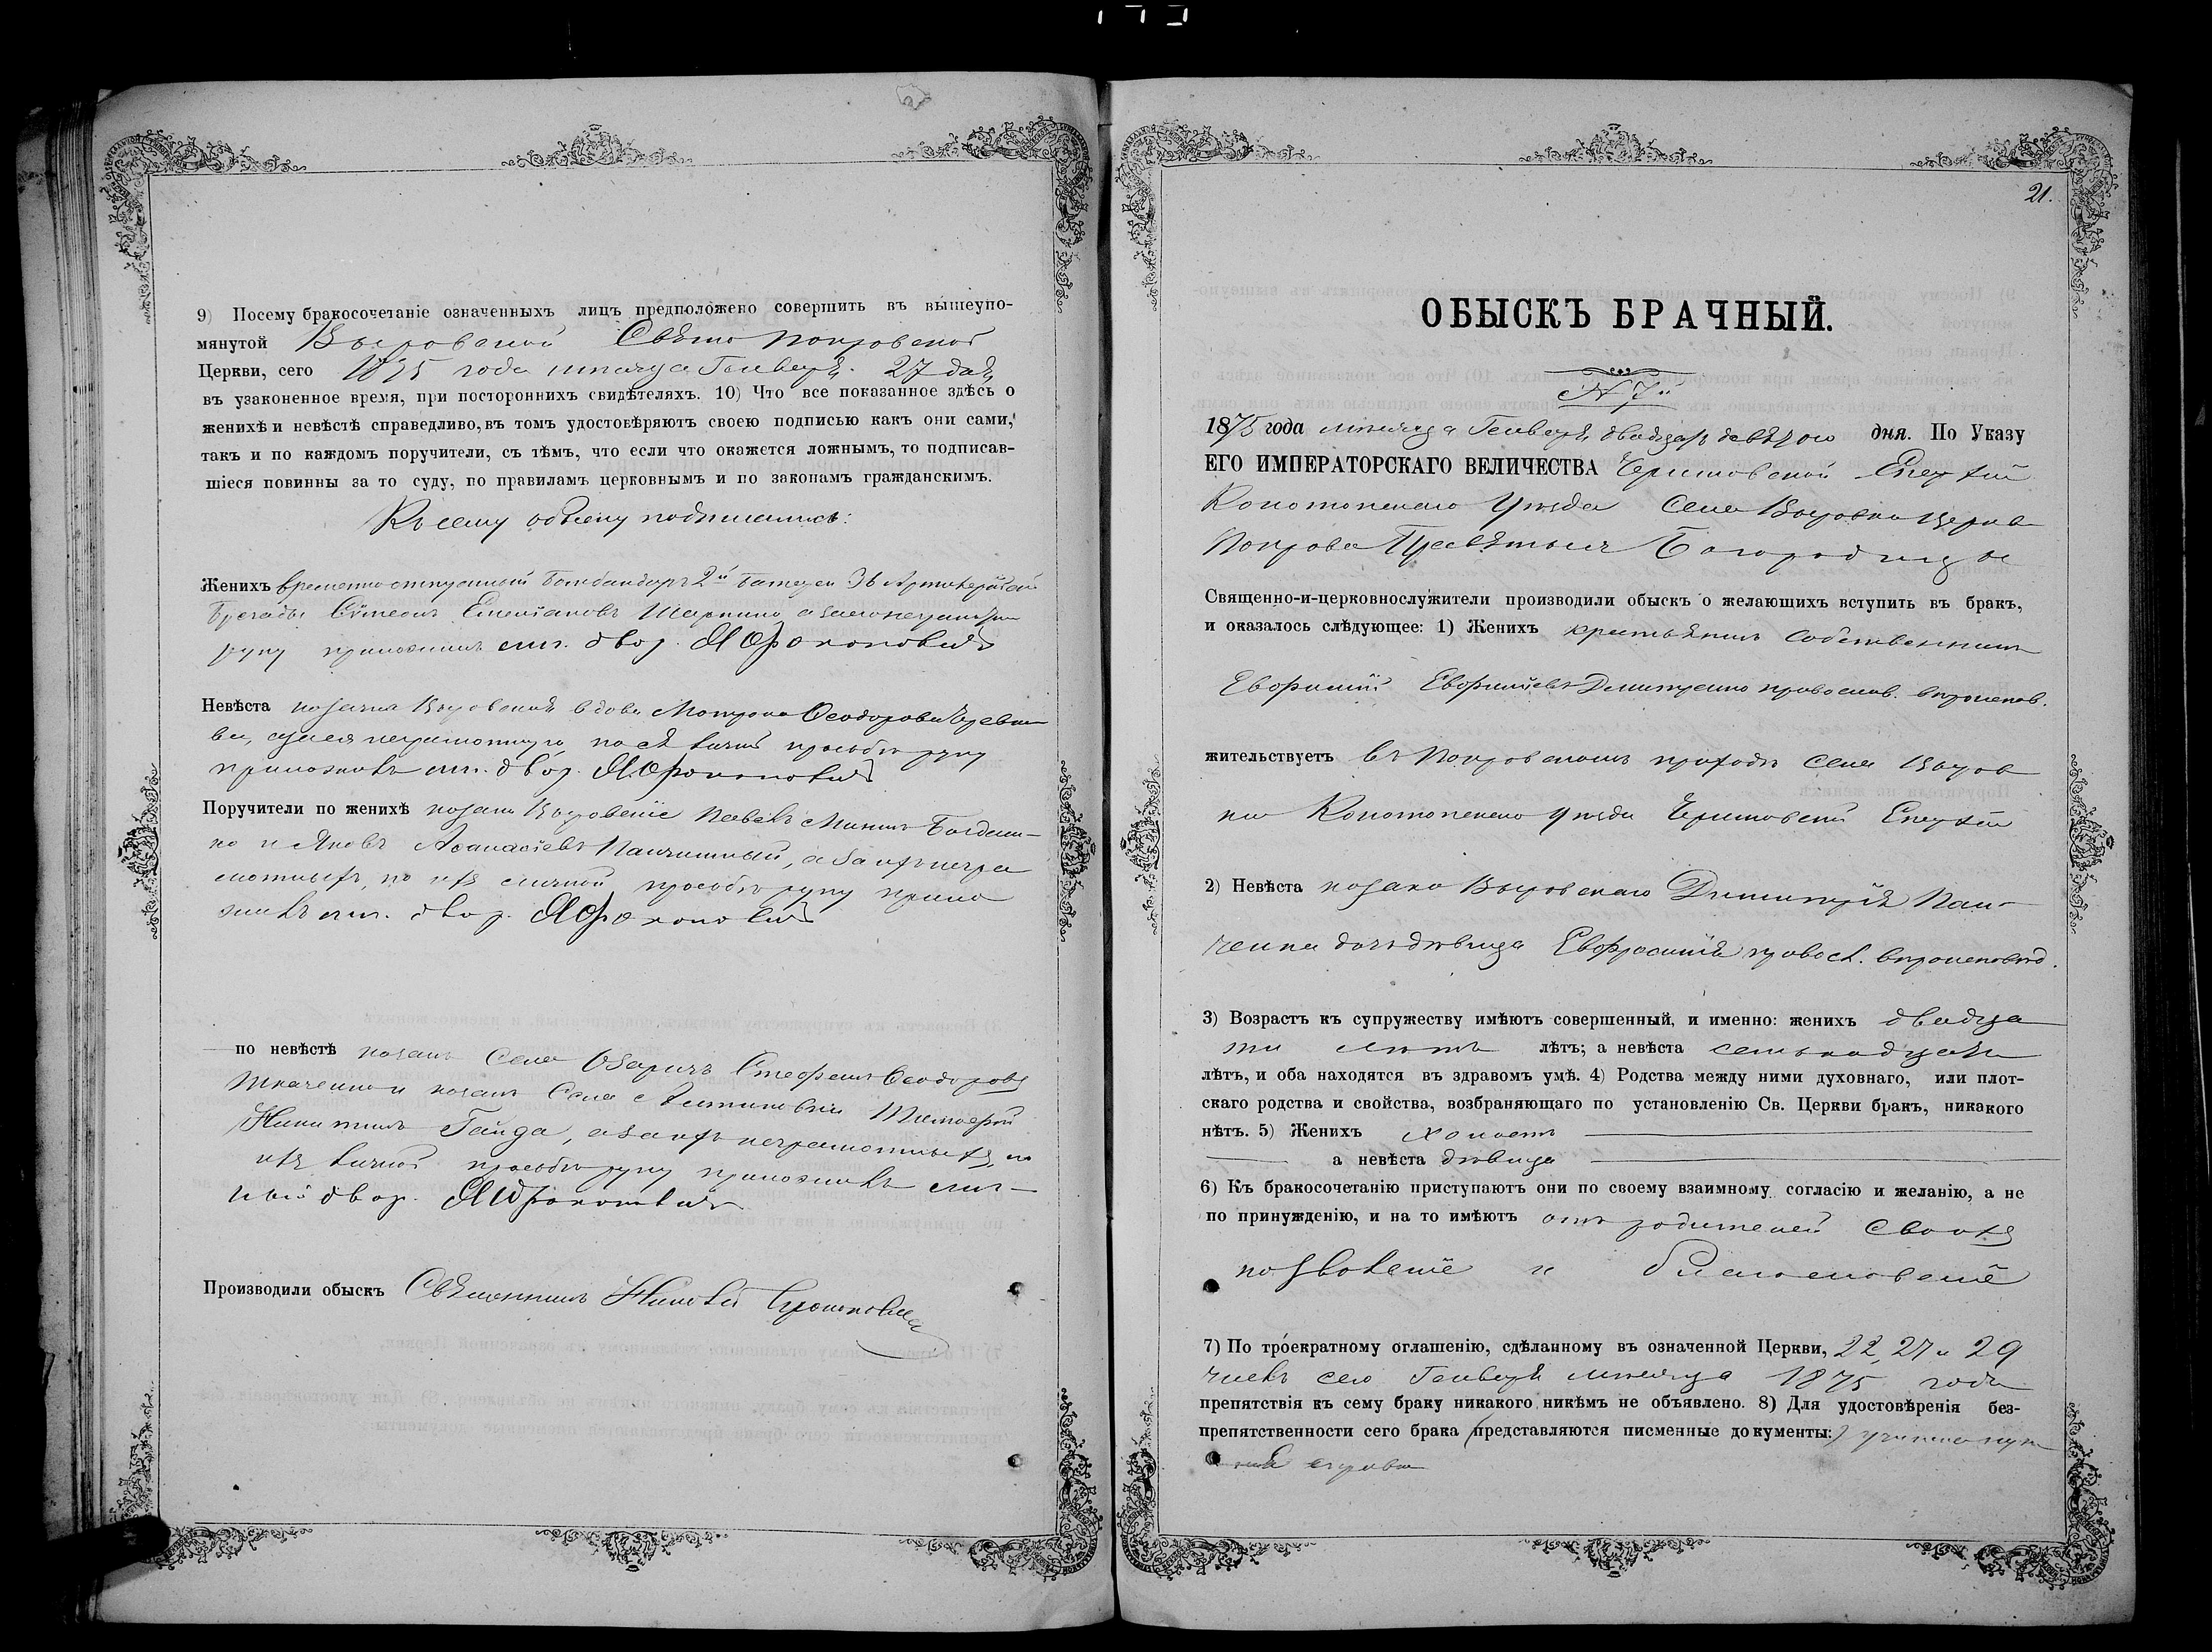 9) Посему бракосочетаніе означенныхъ лицъ предположено совершить въ вышеупо-
мянутой Выровской Свято Покровской
Церкви, сего 1875 года мѣсяца Генваря 27 дня,
въ узаконенное время, при постороннихъ свидѣтеляхъ. 10) Что все показанное здѣсь о
женихѣ и невѣстѣ справедливо, въ томъ удостовѣряютъ своею подписью какъ они сами,
такъ и по каждомъ поручители, съ тѣмъ, что если что окажется ложнымъ, то подписав-
шіеся повинны за то суду, по правиламъ церковнымъ и по законамъ гражданскимъ.
Къ сему обыску подписались:
Женихъ временно отпускный Бомбандиръ 2й Батареи Артилерійской
Бригады Сѵмеонъ а за него неграмотн
руку приложилъ двор. Я Прокоповичъ
Невѣста козачка Выровская вдова Мотрона Ѳеодорова
ва, а за нея неграмотную, по ея личной просьбѣ руку
приложилъ двор. Я. Прокоповичъ
Поручители по женихѣ козаки Выровскіе Павелъ Богдан-
ко и Яковъ Аѳанасіевъ а за ихъ негра
мотныхъ, по ихъ личной просьбѣ руку прило
жилъ двор. Я Прокоповичъ
по невѣстѣ козакъ Села Озаричъ Стефанъ Ѳеодоровъ
Ткаченко и козакъ Села Тимоѳей
Никитинъ Гайда, а за ихъ неграмотныхъ, по
ихъ личной просьбѣ руку приложилъ
двор. Я Прокоповичъ
Производили обыскъ Священникъ
21.
ОБЫСКЪ БРАЧНЫЙ.
N 7й
1875 года мѣсяца Генваря двадцать девятого дня. По Указу
ЕГО ИМПЕРАТОРСКАГО ВЕЛИЧЕСТВА Черниговской Епархіи
Конотопскаго Уѣзда Села Выровки Церкви
Покрова Пресвятыя Богородицы
Священно-и-церковнослужители производили обыскъ о желающихъ вступить въ бракъ,
и оказалось слѣдующее: 1) Женихъ крестьянинъ собственникъ
Евфимій Евфиміевъ Дмитренко православ. вѣроисповѣд.
жительствуетъ въ Покровскомъ приходѣ Села Выров
ки Конотопскаго уѣзда Черниговской Епархіи
2) Невѣста козака Выровскаго Димитрія Пан-
ченка дочь дѣвица Евфросинія правосл. вѣроисповѣд.
3) Возрастъ къ супружеству имѣютъ совершенный, и именно: женихъ двадца
ти лѣтъ лѣтъ; а невѣста семьнадцать
лѣтъ, и оба находятся въ здравомъ умѣ. 4) Родства между ними духовнаго, или плот-
скаго родства и свойства, возбраняющаго по установленію Св. Церкви бракъ, никакого
нѣтъ. 5) Женихъ холостъ
а невѣста дѣвица
6) Къ бракосочетанію приступаютъ они по своему взаимному согласію и желанію, а не
по принужденію, и на то имѣютъ отъ родителей своихъ
позволеніе и благословеніе
7) По троекратному оглашенію, сдѣланному въ означенной Церкви, 22, 27 и 29
числъ сего Генваря мѣсяца 1875 года
препятствія къ сему браку никакого никѣмъ не объявлено. 8) Для удостовѣренія без-
препятственности сего брака представляются писменные документы: